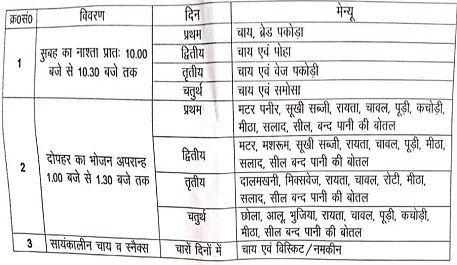 क्र0सं0 विवरण दिन मेन्यू
1 सुबह का नाश्ता प्रातः 10.00
बजे से 10.30 बजे तक
प्रथम चाय, ब्रेड पकोड़ा
द्वितीय चाय एवं पोहा
तृतीय चाय एवं वेज पकोड़ी
चतुर्थ चाय एवं समोसा
2 दोपहर का भोजन अपरान्ह
1.00 बजे से 1.30 बजे तक
प्रथम मटर पनीर, सूखी सब्जी, रायता, चावल, पूड़ी, कचोड़ी,
मीठा, सलाद, सील, बन्द पानी की बोतल
द्वितीय मटर, मशरूम, सूखी सब्जी, रायता, चावल, पूड़ी, मीठा,
सलाद, सील बन्द पानी की बोतल
तृतीय दालमखनी, मिक्सवेज, रायता, चावल, रोटी, मीठा,
सलाद, सील बन्द पानी की बोतल
चतुर्थ छोला, आलू, भुजिया, रायता, चावल, पूड़ी, कचोड़ी,
मीठा, सील बन्द पानी की बोतल
3 सायंकालीन चाय व स्नैक्स चारों दिनों में चाय एवं विस्किट/नमकीन